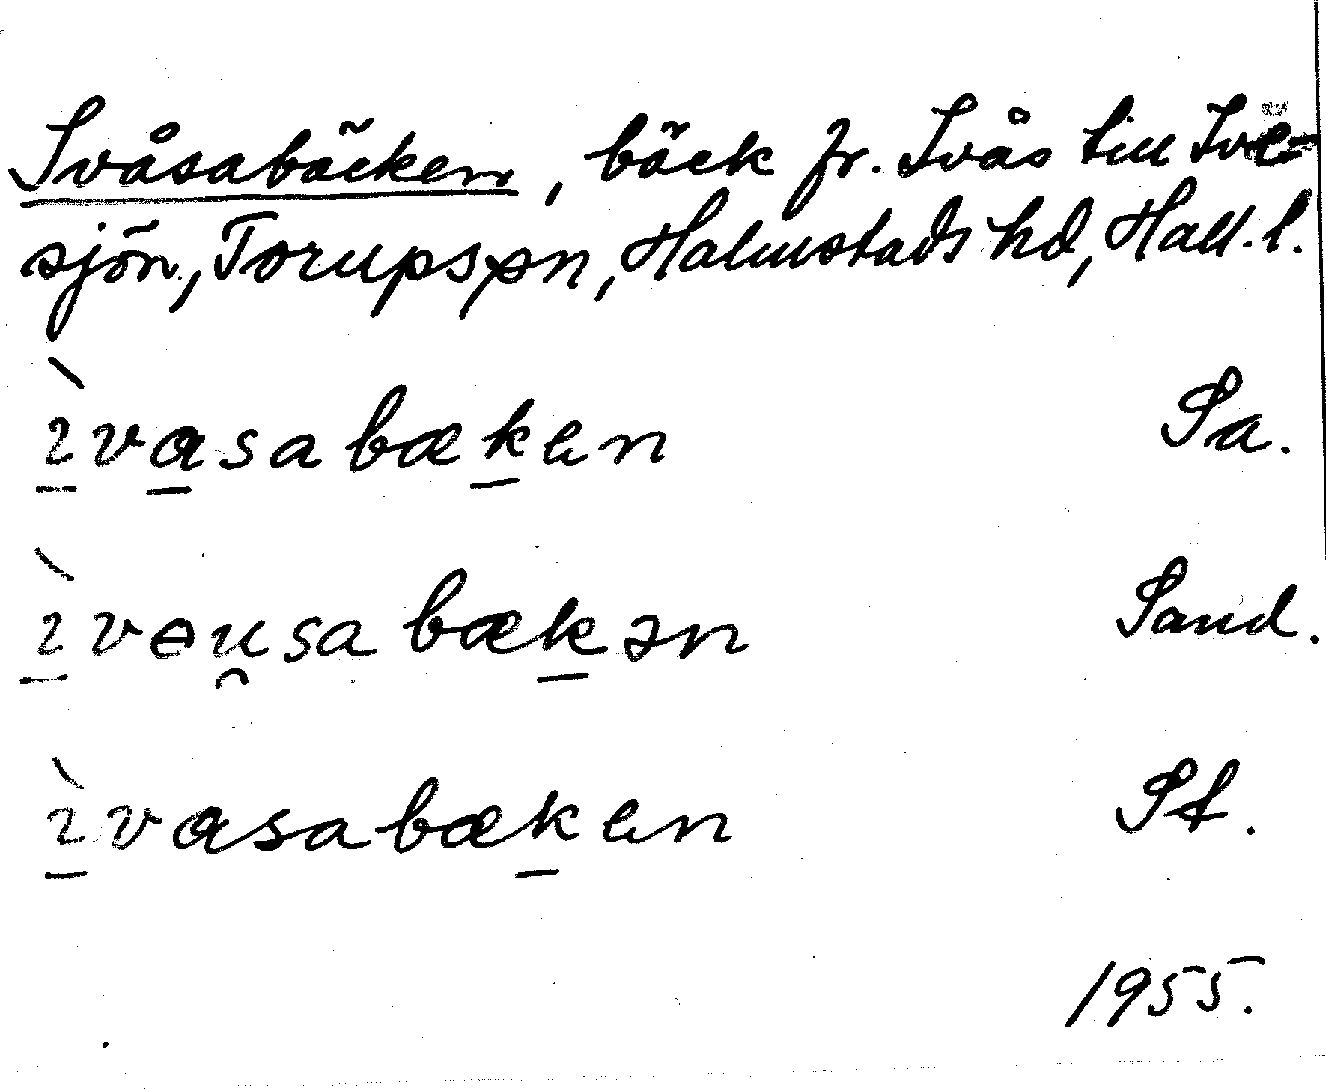 Ivåsabäcken, bäck fr. Ivås till Ive-
sjön, Torups sn, Halmstads hd, Hall. l.
ìvasabæken Sa.
ìvɵu̯sabækən Sand.
ìvasabæken St.
1955.